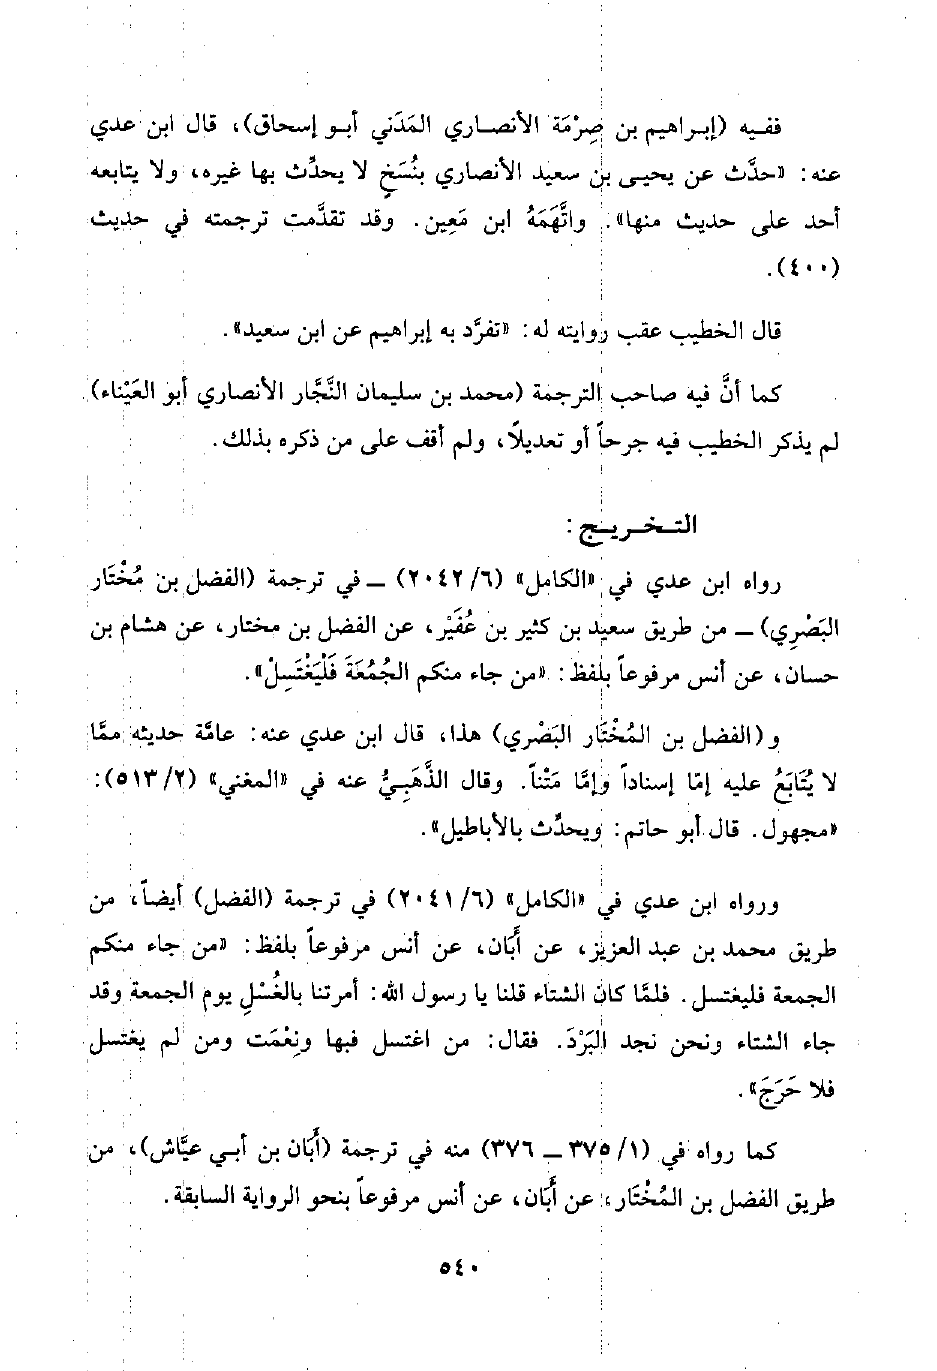 ففيه (إبراهيم بن صِرْمَة الأنصاري المَدَني أبو إسحاق)، قال ابن عدي
عنه: «حدَّث عن يحيى بن سعيد الأنصاري بنُسَخٍ لا يحدِّث بها غيره، ولا يتابعه
أحد على حديث منها». واتَّهَمَهُ ابن مَعِين. وقد تقدَّمت ترجمته في حديث
(٤٠٠).
قال الخطيب عقب روايته له: «تفرَّد به إبراهيم عن ابن سعيد».
كما أنَّ فيه صاحب الترجمة (محمد بن سليمان النَّجَّار الأنصاري أبو العَيْناء)
لم يذكر الخطيب فيه جرحاً أو تعديلاً، ولم أقف على من ذكره بذلك.
التخريج:
رواه ابن عدي في «الكامل» (٢٠٤٢/٦) ــ في ترجمة (الفضل بن مُخْتَار
البَصْرِي) ــ من طريق سعيد بن كثير بن عُفَيْر، عن الفضل بن مختار، عن هشام بن
حسان، عن أنس مرفوعاً بلفظ: «من جاء منكم الجُمُعَةَ فَلْيَغْتَسِلْ».
و (الفضل بن المُخْتَار البَصْري) هذا، قال ابن عدي عنه: عامَّة حديثه ممَّا
لا يُتَابَعُ عليه إمّا إسناداً وإمَّا مَتْناً. وقال الذَّهَبِيُّ عنه في «المغني» (٥١٣/٢):
«مجهول. قال أبو حاتم: ويحدِّث بالأباطيل».
ورواه ابن عدي في «الكامل» (٢٠٤١/٦) في ترجمة (الفضل) أيضاً، من
طريق محمد بن عبد العزيز، عن أَبَان، عن أنس مرفوعاً بلفظ: «من جاء منكم
الجمعة فليغتسل. فلمَّا كان الشتاء قلنا يا رسول الله: أمرتنا بالغُسْلِ يوم الجمعة وقد
جاء الشتاء ونحن نجد البَرْدَ. فقال: من اغتسل فبها ونِعْمَت ومن لم يغتسل
فلا حَرَجَ».
كما رواه في (٣٧٥/١ ــ ٣٧٦) منه في ترجمة (أَبَان بن أبي عيَّاش)، من
طريق الفضل بن المُخْتَار، عن أَبَان، عن أنس مرفوعاً بنحو الرواية السابقة.
٥٤٠